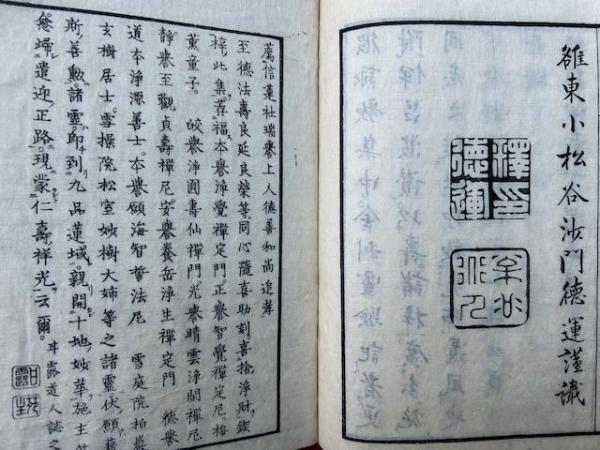 雒東小松谷沙門德運謹識
釋印
德運
薦信蓮社瑞譽上人德善和尚追孝
至德法壽良延良榮等同心隨喜助刻喜捨淨財鋟
梓此集荐福本譽淨覺禪定門正譽智覺禪定尼梅
薫童子 皎譽淨圓壽仙禪門光譽晴雲淨閒禪尼
靜譽至觀貞壽禪尼安譽養岳淨生禪定門 德譽
道本淨源善士本譽願海智誓法尼 雪庭院柏
玄樹居士雪操院松室妙樹大姉等之諸靈伏願
斯善勲諸靈即到九品蓮域親開十地妙華施主
歸遣迎正路現蒙仁壽祥光云爾
甘露道人誌之